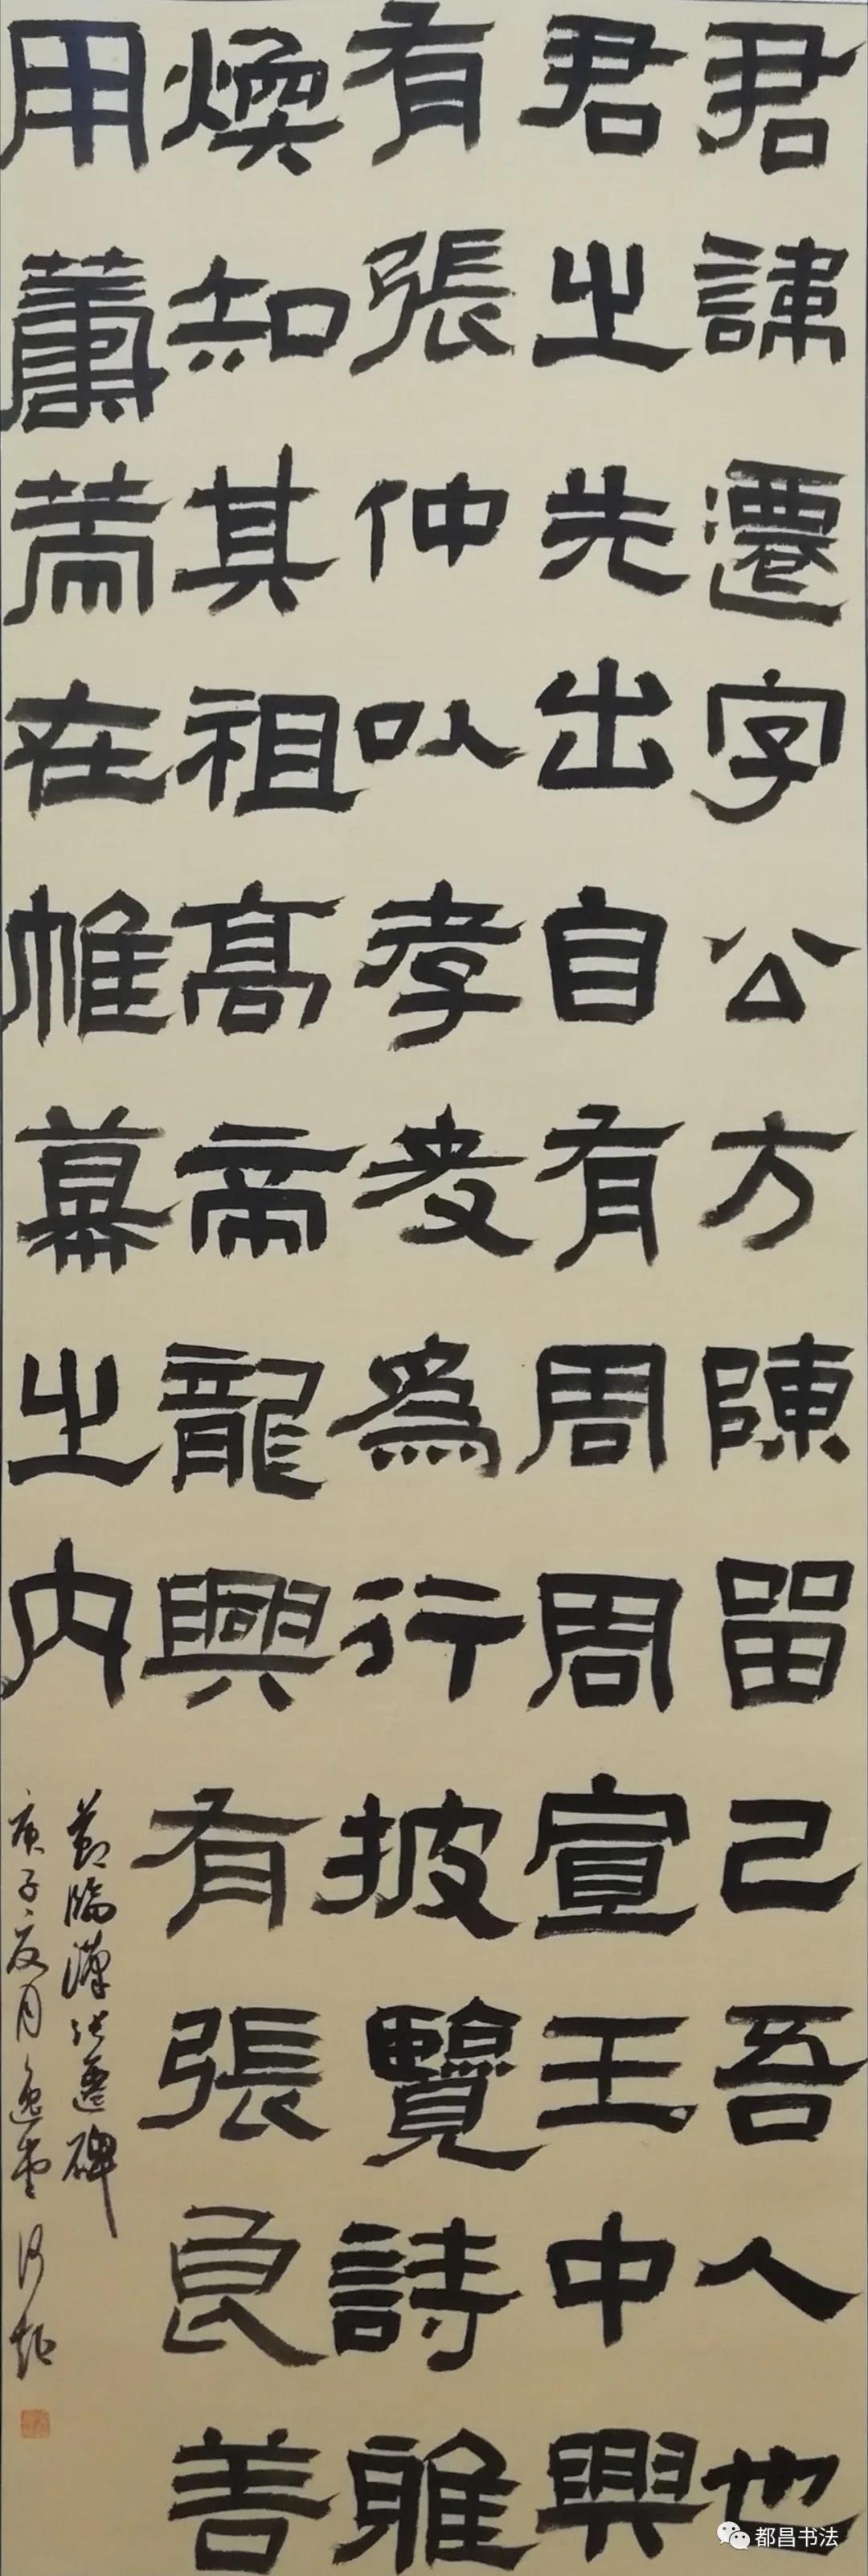 君諱遷字公方陳留己吾人也
君之先出自有周周宣王中興
有張仲以孝友為行披覽詩雅
煥知其祖高帝龍興有張良善
用籌策在帷幕之内
節臨漢張遷碑
庚子夏月逸雲
都昌书法